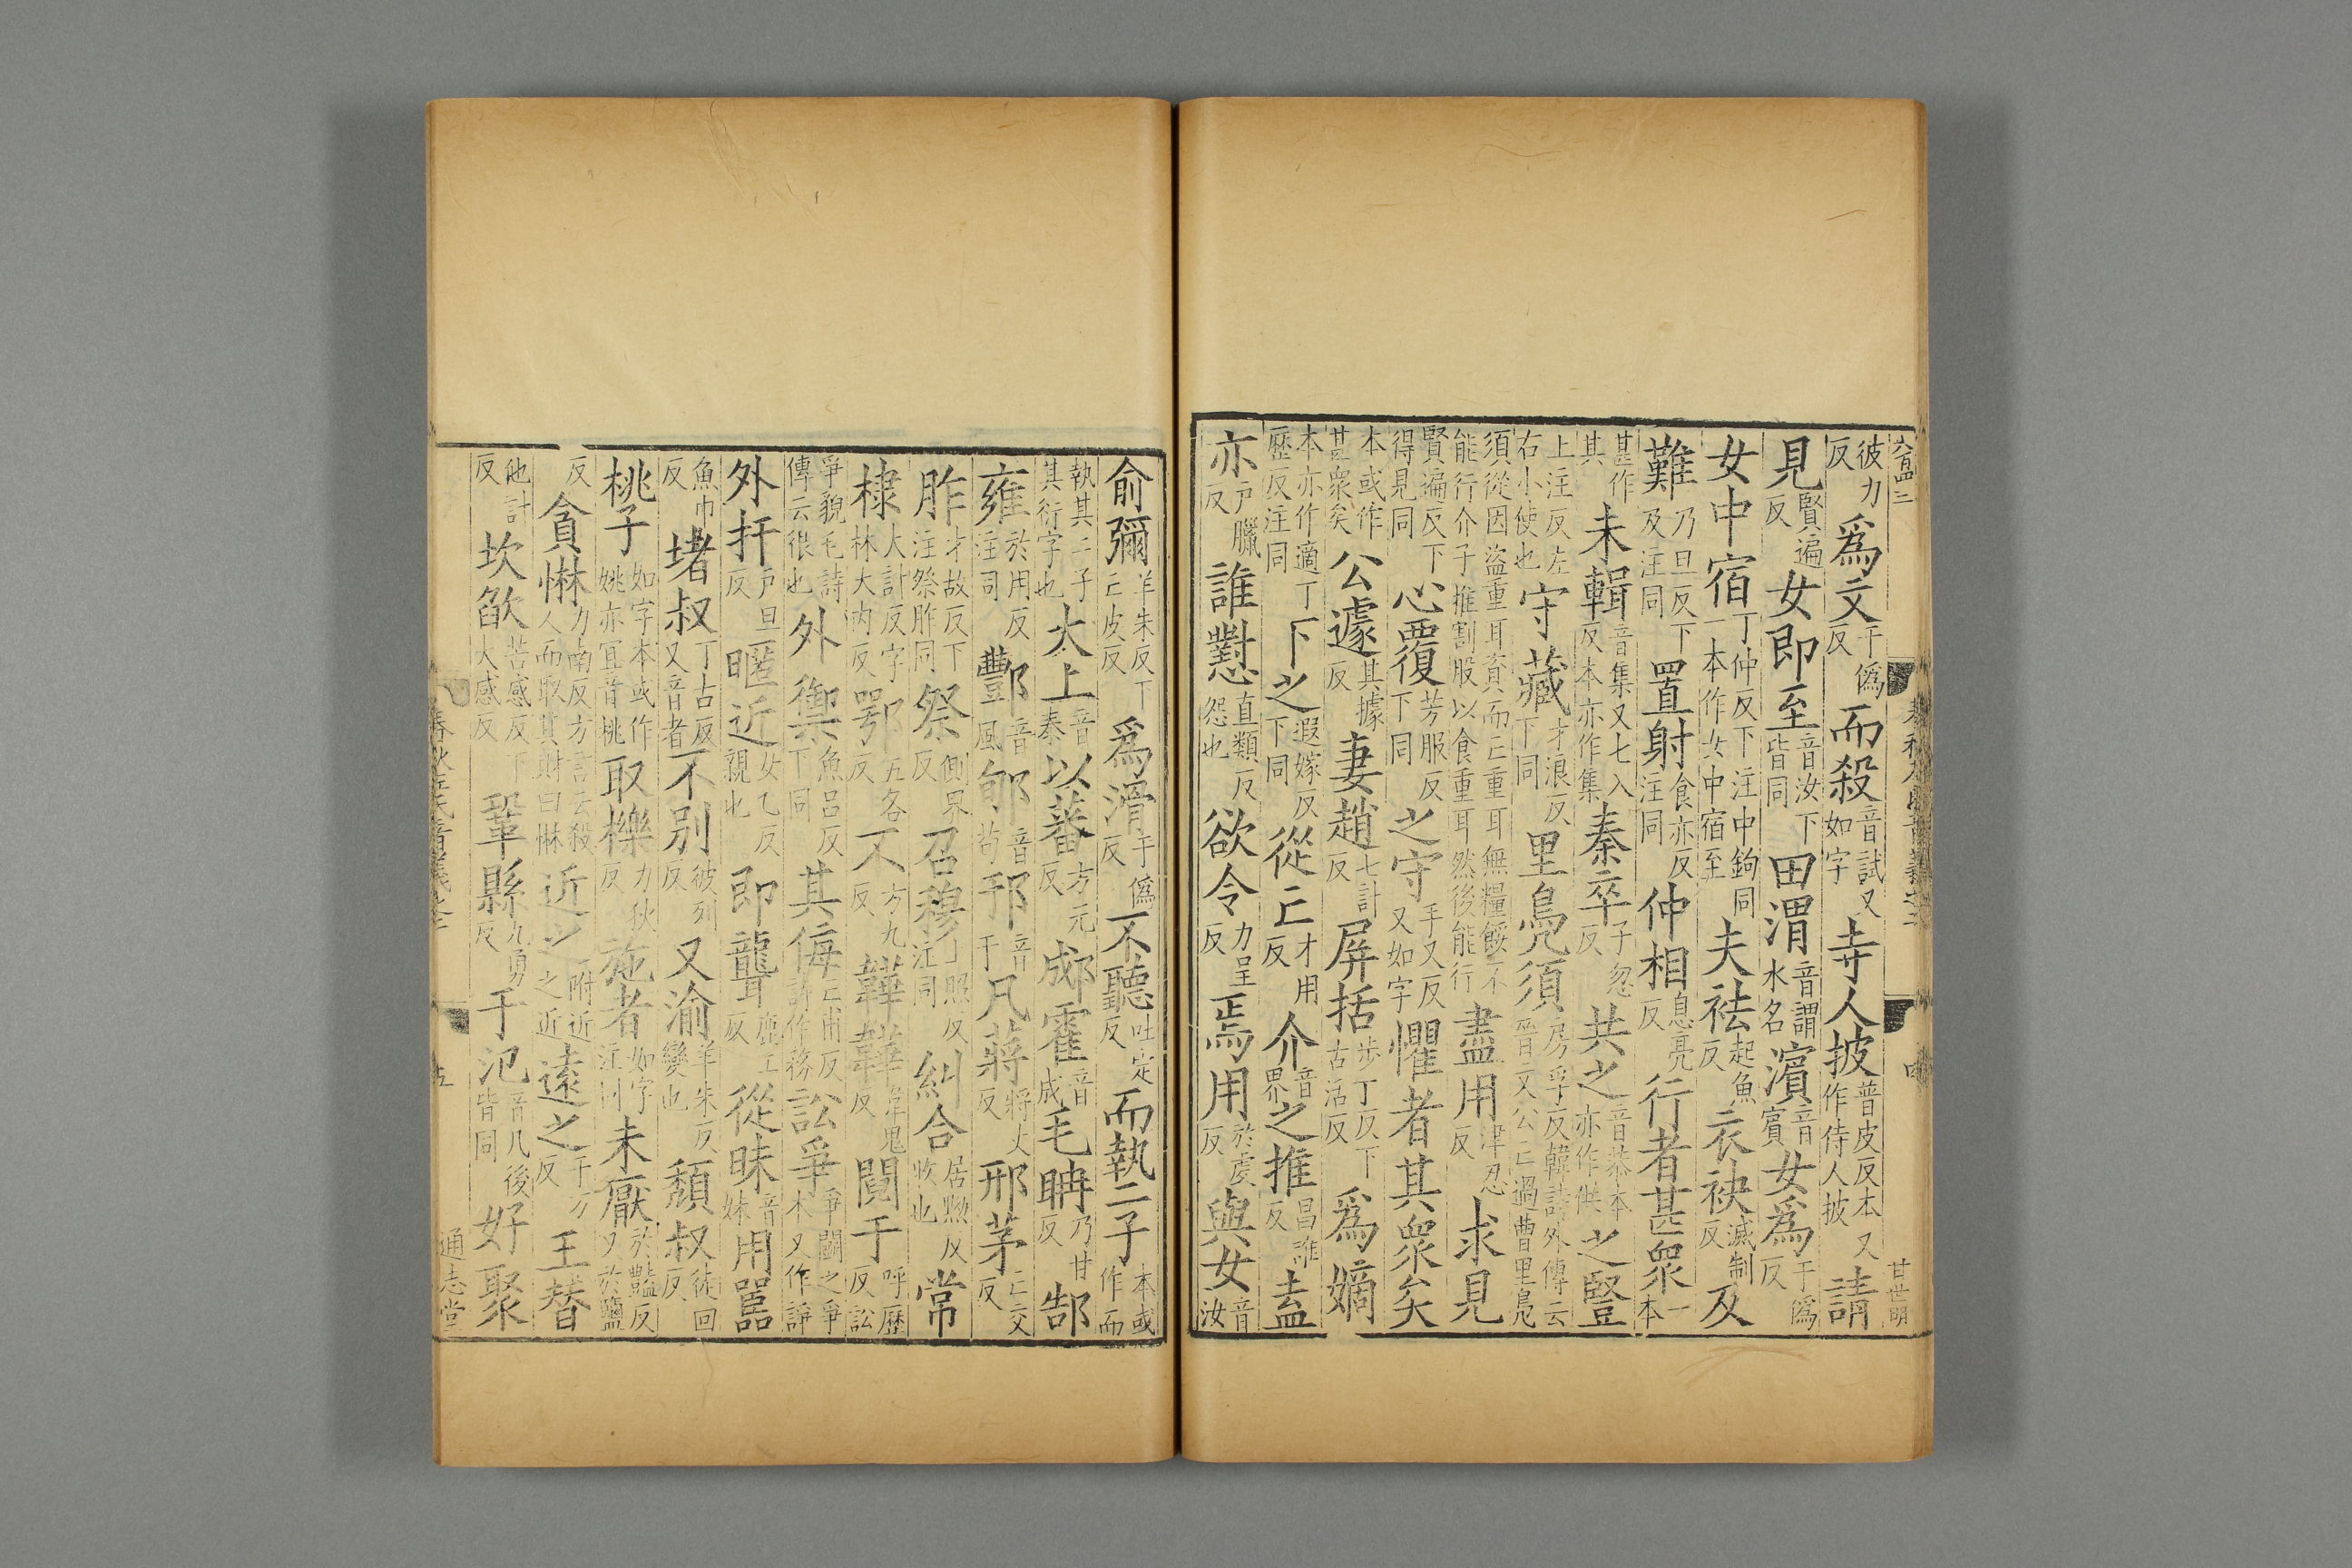 彼力反爲文于僞反而殺音試又如字寺人披普皮反本又作侍人披請
見賢遍反女即至音汝下皆同田渭音謂水名濱音賓女爲于僞反
女中宿丁仲反下注中鉤同一本作女中宿至夫袪起魚反衣袂滅制反及
難乃旦反下及注同置射食亦反注同仲相息亮反行者甚衆一本
甚作其未輯音集又七入反本亦作集秦卒子忽反共之音恭本亦作供之豎
上注反左右小使也守藏才浪反下同里鳧須房孚反韓詩外傳云晉文公亡過曹里鳧
須從因盜重耳資而亡重耳無糧餒不能行介子推割股以食重耳然後能行盡用津忍反求見
賢遍反下得見同心覆芳服反下同之守手又反又如字懼者其衆矣
本或作甚衆矣公遽其據反妻趙七計反屏括步丁反下古活反爲嫡
本亦作適丁歷反注同下之遐嫁反下同從亡才用反介音界之推昌誰反盍
亦戶臘反誰懟直類反怨也欲令力呈反焉用於虔反與女音汝
甘世明
俞彌羊朱反下亡皮反爲滑于僞反不聽吐定反而執二子本或作而
執其二子其衍字也大上音泰以蕃方元反郕霍音成毛聃乃甘反郜
雍於用反注同酆音風郇音荀邗音于凡蔣將丈反邢茅亡交反
胙才故反下注祭胙同祭側界反召穆上照反注同糾合居黝反收也常
棣大計反字林大內反鄂五各反不方九反韡韡韋鬼反鬩于呼歷反訟
爭貌毛詩傳云很也外禦魚呂反下同其侮亡甫反詩作務訟爭爭鬬之爭本又作諍
外扞戶旦反暱近女乙反親也即聾鹿工反從昧音妹用嚚
魚巾反堵叔丁古反又音者不別彼列反又渝羊朱反變也頹叔徒回反
桃子如字本或作姚亦宜音桃取櫟力狄反施者如字注同未厭於豔反又於鹽
反貪惏力南反方言云殺人而取其財曰惏近之附近之近遠之于万反王替
他計反坎欿苦感反下大感反鞏縣九勇反于氾音凡後皆同好聚
春秋左氏音義之二
五
通志堂